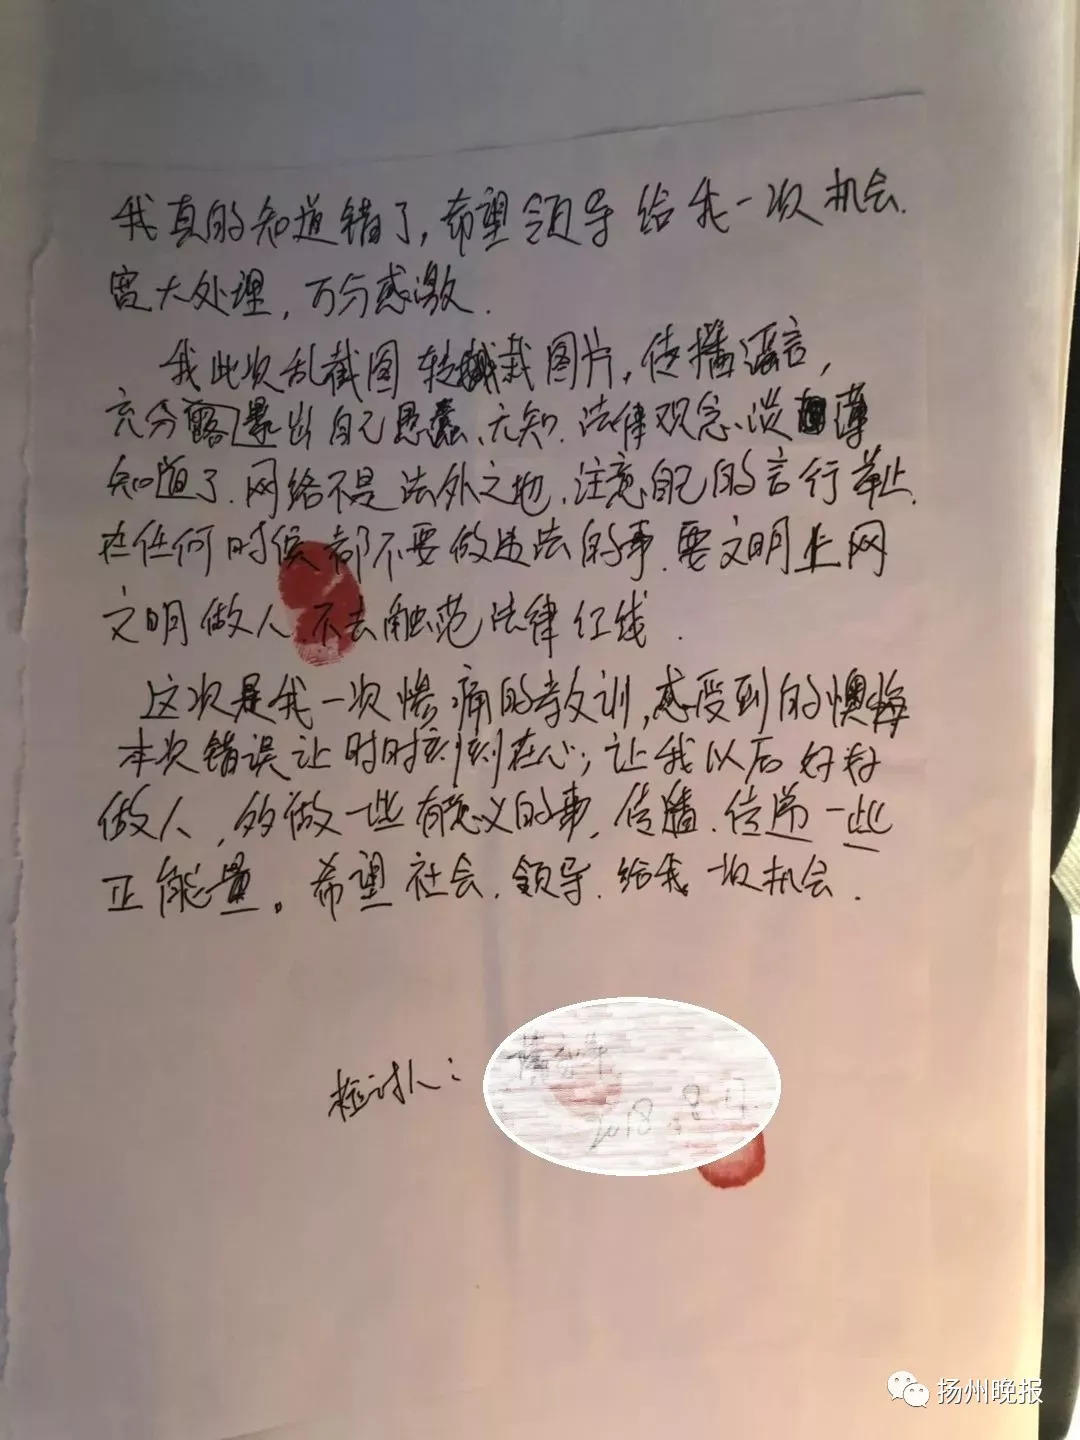 我真的知道错了,希望领导给我一次机会.
宽大处理,万分感激.
我此次乱截图转载图片,传播谣言,
充分暴出自己愚蠢、无知.法律观念、淡薄
知道了.网络不是法外之地,注意自己的言行举止.
在任何时候都不要做违法的事.要文明上网
文明做人.不去触范法律红线.
这次是我一次惨痛的教训,感受到的懊悔
本次错误让时时刻刻在心;让我以后好好
做人,多做一些有意义的事,传播.传递一些
正能量。希望社会.领导.给我一次机会.
检讨人:
2018.8.
扬州晚报